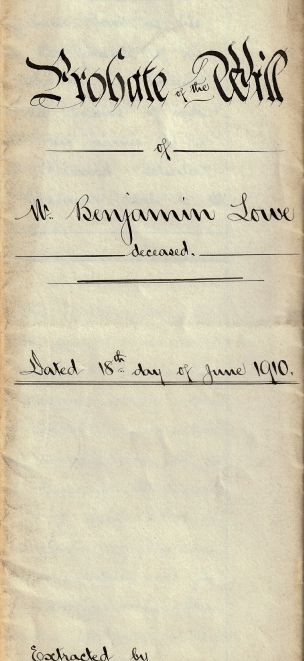 Probate of the Will
of
Mr. Benjamin Lowe
deceased.
Dated 18th day of June 1910.
Extracted by